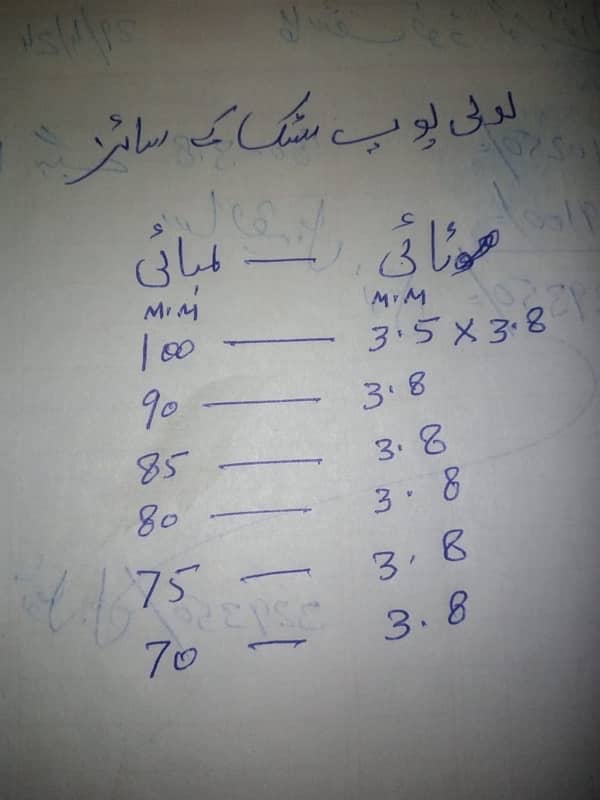 لولی پوپ سٹک کے سائز
موٹائی — لمبائی
M.M M.M
100 — 3.5 x 3.8
90 — 3.8
85 — 3.8
80 — 3.8
75 — 3.8
70 — 3.8